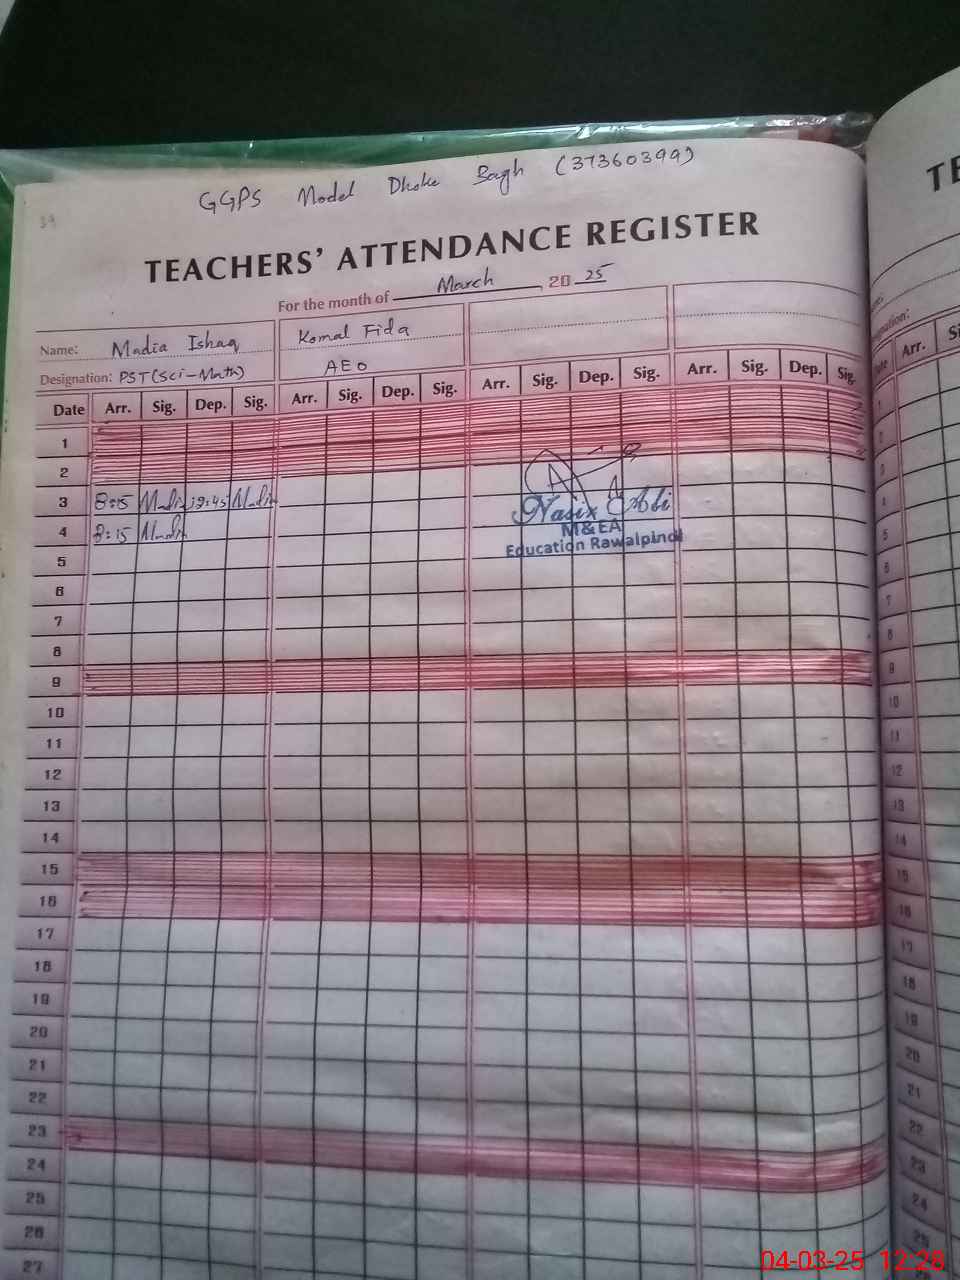 GGPS Model Dhoke Bagh (37360399)
39
TEACHERS' ATTENDANCE REGISTER
For the month of March, 20 25
Name: Madia Ishaq Komal Fida
Designation: PST(Sci-Math) AEO
Date Arr. Sig. Dep. Sig. Arr. Sig. Dep. Sig. Arr. Sig. Dep. Sig. Arr. Sig. Dep. Sig.
1
2
3 8:15 Madia 12:45 Madia
4 8:15 Madia
Nasir Abi
M&EA
Education Rawalpindi
5
6
7
8
9
10
11
12
13
14
15
16
17
18
19
20
21
22
23
24
25
26
27
TE
Arr.
Date
1
2
3
4
5
6
7
8
9
10
11
12
13
14
15
16
17
18
19
20
21
22
23
24
25
04-03-25 12:28